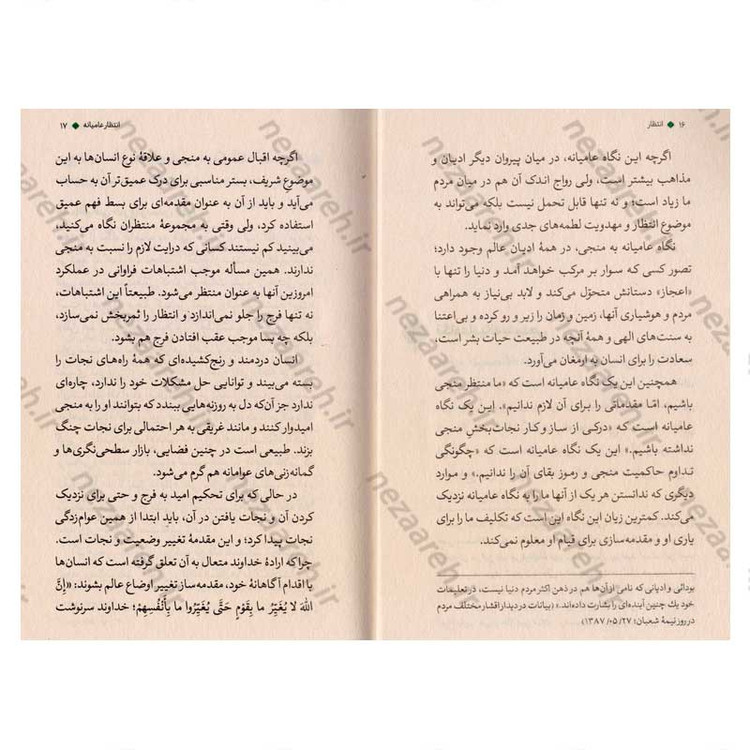 ۱۶ ◆ انتظار
اگرچه این نگاه عامیانه، در میان پیروان دیگر ادیان و
مذاهب بیشتر است، ولی رواج اندک آن هم در میان مردم
ما زیاد است؛ و نه تنها قابل تحمل نیست بلکه می‌تواند به
موضوع انتظار و مهدویت لطمه‌های جدی وارد نماید.
نگاه عامیانه به منجی، در همهٔ ادیان عالم وجود دارد؛
تصور کسی که سوار بر مرکب خواهد آمد و دنیا را تنها با
«اعجاز» دستانش متحوّل می‌کند و لابد بی‌نیاز به همراهی
مردم و هوشیاری آنها، زمین و زمان را زیر و رو کرده و بی‌اعتنا
به سنت‌های الهی و همهٔ آنچه در طبیعت حیات بشر است،
سعادت را برای انسان به ارمغان می‌آورد.
همچنین این یک نگاه عامیانه است که «ما منتظر منجی
باشیم، امّا مقدماتی را برای آن لازم ندانیم». این یک نگاه
عامیانه است که «درکی از ساز و کار نجات‌بخشِ منجی
نداشته باشیم.» این یک نگاه عامیانه است که «چگونگی
تداوم حاکمیت منجی و رموز بقای آن را ندانیم.» و موارد
دیگری که ندانستن هر یک از آنها ما را به نگاه عامیانه نزدیک
می‌کند. کمترین زیان این نگاه این است که تکلیف ما را برای
یاری او و مقدمه‌سازی برای قیام او معلوم نمی‌کند.
بودائی و ادیانی که نامی از آن‌ها هم در ذهن اکثر مردم دنیا نیست، در تعلیمات
خود یك چنین آینده‌ای را بشارت داده‌اند.» (بیانات در دیدار اقشار مختلف مردم
در روز نیمهٔ شعبان؛ ۱۳۸۷/۰۵/۲۷)
انتظار عامیانه ◆ ۱۷
اگرچه اقبال عمومی به منجی و علاقهٔ نوع انسان‌ها به این
موضوع شریف، بستر مناسبی برای درک عمیق‌تر آن به حساب
می‌آید و باید از آن به عنوان مقدمه‌ای برای بسط فهم عمیق
استفاده کرد، ولی وقتی به مجموعهٔ منتظران نگاه می‌کنید،
می‌بینید کم نیستند کسانی که درایت لازم را نسبت به منجی
ندارند. همین مسأله موجب اشتباهات فراوانی در عملکرد
امروزین آنها به عنوان منتظر می‌شود. طبیعتاً این اشتباهات،
نه تنها فرج را جلو نمی‌اندازد و انتظار را ثمربخش نمی‌سازد،
بلکه چه بسا موجب عقب افتادن فرج هم بشود.
انسان دردمند و رنج‌کشیده‌ای که همهٔ راه‌های نجات را
بسته می‌بیند و توانایی حل مشکلات خود را ندارد، چاره‌ای
ندارد جز آن‌که دل به روزنه‌هایی ببندد که بتوانند او را به منجی
امیدوار کنند و مانند غریقی به هر احتمالی برای نجات چنگ
بزند. طبیعی است در چنین فضایی، بازار سطحی‌نگری‌ها و
گمانه‌زنی‌های عوامانه هم گرم می‌شود.
در حالی که برای تحکیم امید به فرج و حتی برای نزدیک
کردن آن و نجات یافتن در آن، باید ابتدا از همین عوام‌زدگی
نجات پیدا کرد؛ و این مقدمهٔ تغییر وضعیت و نجات است.
چرا که ارادهٔ خداوند متعال به آن تعلق گرفته است که انسان‌ها
با اقدام آگاهانهٔ خود، مقدمه‌ساز تغییر اوضاع عالم بشوند: «إِنَّ
اللّهَ لا يُغَيِّرُ ما بِقَوْمٍ حَتَّى يُغَيِّرُوا ما بِأَنْفُسِهِمْ؛ خداوند سرنوشت
nezaareh.ir